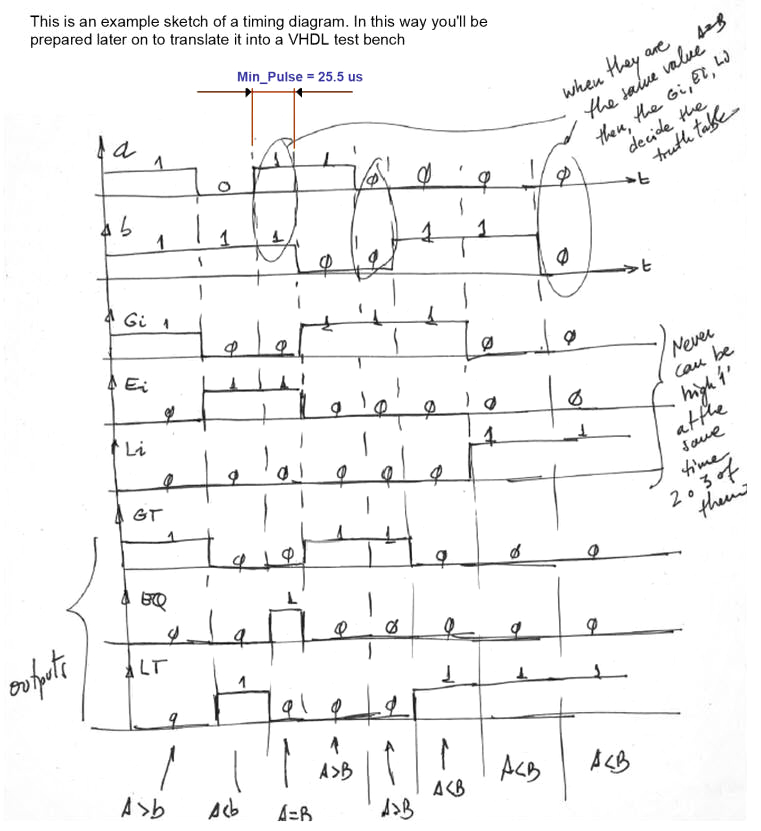 This is an example sketch of a timing diagram. In this way you'll be
prepared later on to translate it into a VHDL test bench
Min_Pulse = 25.5 us
when they are
the same value A=B
then, the Gi, Ei, Li
decide the
truth table
a 1 0 1 1 φ φ φ φ t
b 1 1 1 φ φ 1 1 φ t
Gi 1 φ φ 1 1 1 φ φ
Ei φ 1 1 φ φ φ φ φ
Li φ φ φ φ φ φ 1 1
Never
can be
high '1'
at the
same
time
2 o 3 of
them
GT 1 φ φ 1 1 φ φ φ
EQ φ φ 1 φ φ φ φ φ
outputs
LT φ 1 φ φ φ 1 1 1
A>b A<b A=B A>B A>B A<B A<B A<B